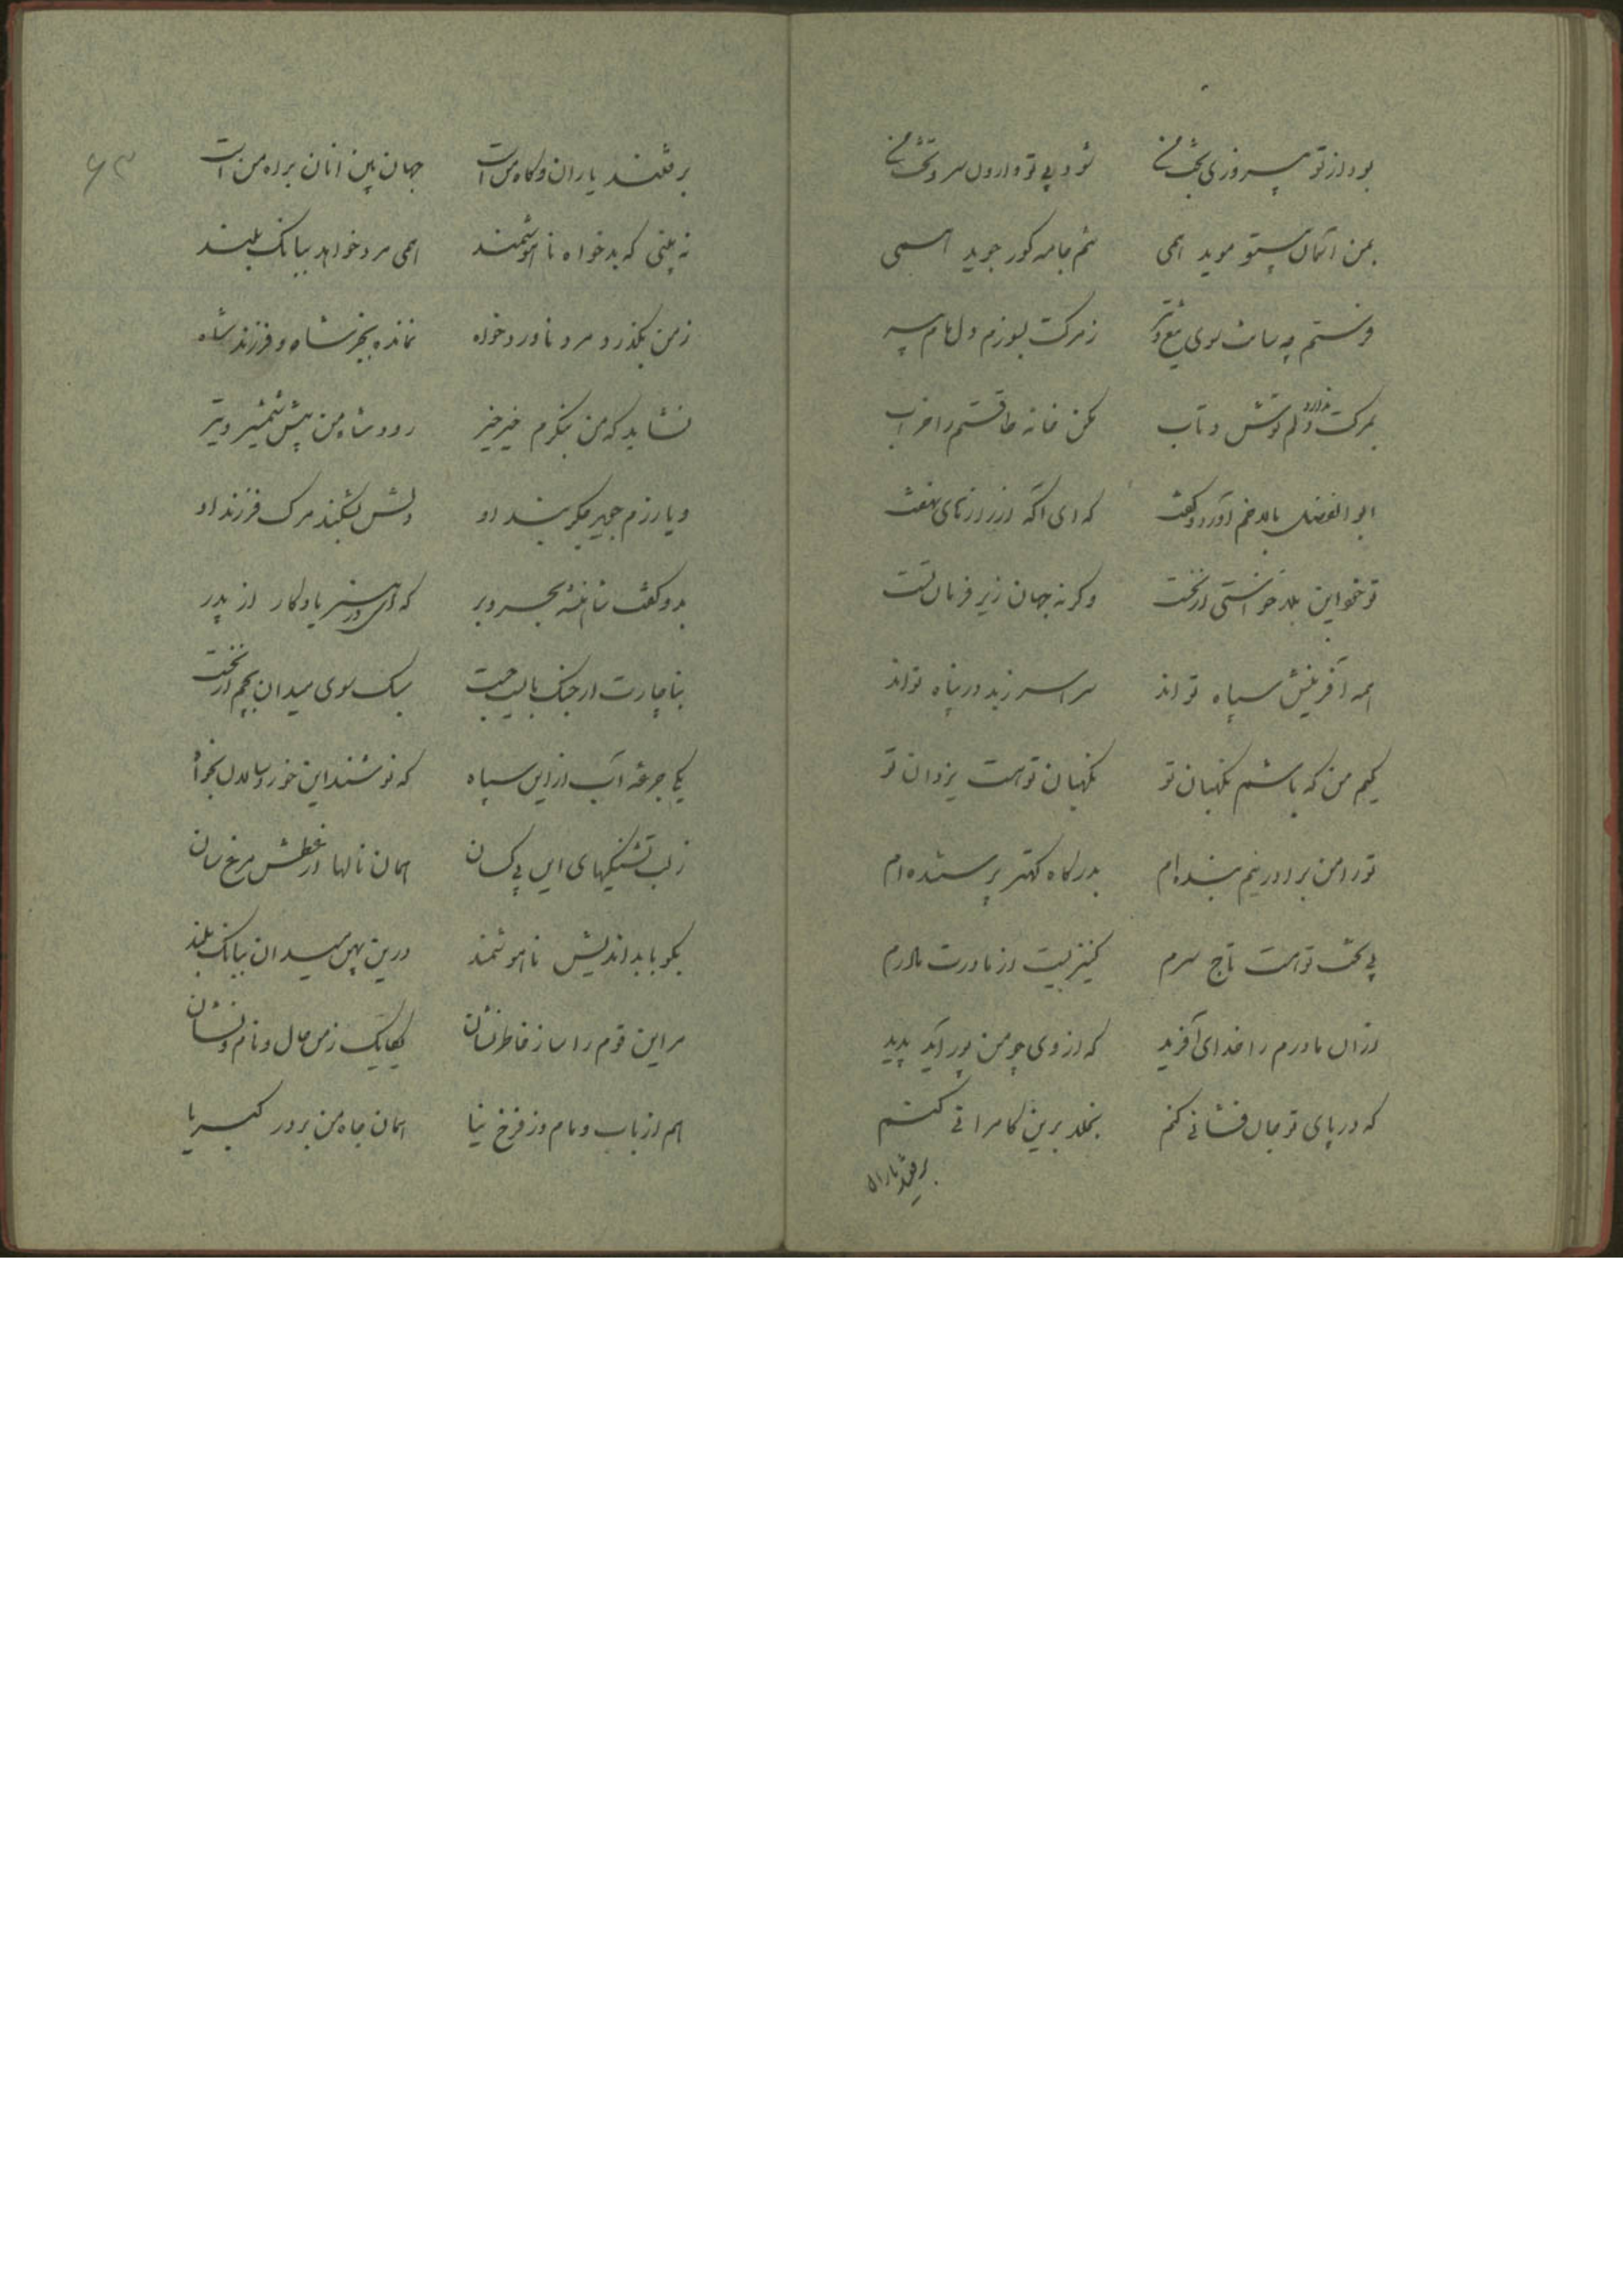 بود از تو پیروزی بخت من شود بی تو وارون سر و تخت من
بمن آسمان بیتو موید همی تنم جامه گور جوید همی
فرستم چه سانت سوی تیغ و تیر ز مرگت بسوزم دل مام پیر
بمرگت ندارد دلم توش و تاب مکن خانه طاقتم را خراب
ابوالفضل بالا بخم آورد و گفت که ای آگه از رازهای نهفت
تو خواین بلا خواستی از نخست وگرنه جهان زیر فرمان تست
همه آفرینش سپاه تواند سراسر زبد در پناه تواند
کیم من که باشم نگهبان تو نگهبان تو هست یزدان تو
تو را من برادر نیم بنده ام بدرگاه کهتر پرستنده ام
پی تخت تو هست تاج سرم کنیزیست از مادرت مادرم
از آن مادرم را خدای آفرید که از وی چو من پور آید پدید
که در پای تو جان فشانی کنم بخلد برین کامرانی کنم
برفتند یاران
۶۳
برفتند یاران و گاه من است جهان بین آنان براه من است
نه بینی که بدخواه ناهوشمند همی مرد خواهد ببانگ بلند
ز من بگذر و مرد ناورد خواه نمانده بجز شاه و فرزند شاه
نشاید که من بنگرم خیر خیر رود شاه من پیش شمشیر و تیر
و یا رزم جوید جگر بند او دلش بشکند مرگ فرزند او
بدو گفت شاهنشه بحر و بر که ای در هنر یادگار از پدر
بناچارت ار جنگ بایست جست سبک سوی میدان بچم از نخست
یکی جرعه آب از این سپاه که نوشند این خورد سالان بخواه
ز لب تشنگیهای این بی کسان همان نالها از عطش مرغ سان
بگو با بداندیش ناهوشمند درین پهن میدان ببانگ بلند
مر این قوم را ساز خاطر نشان یکایک ز من حال و نام و نشان
هم از باب و مام وز فرخ نیا همان جاه من بر در کبریا